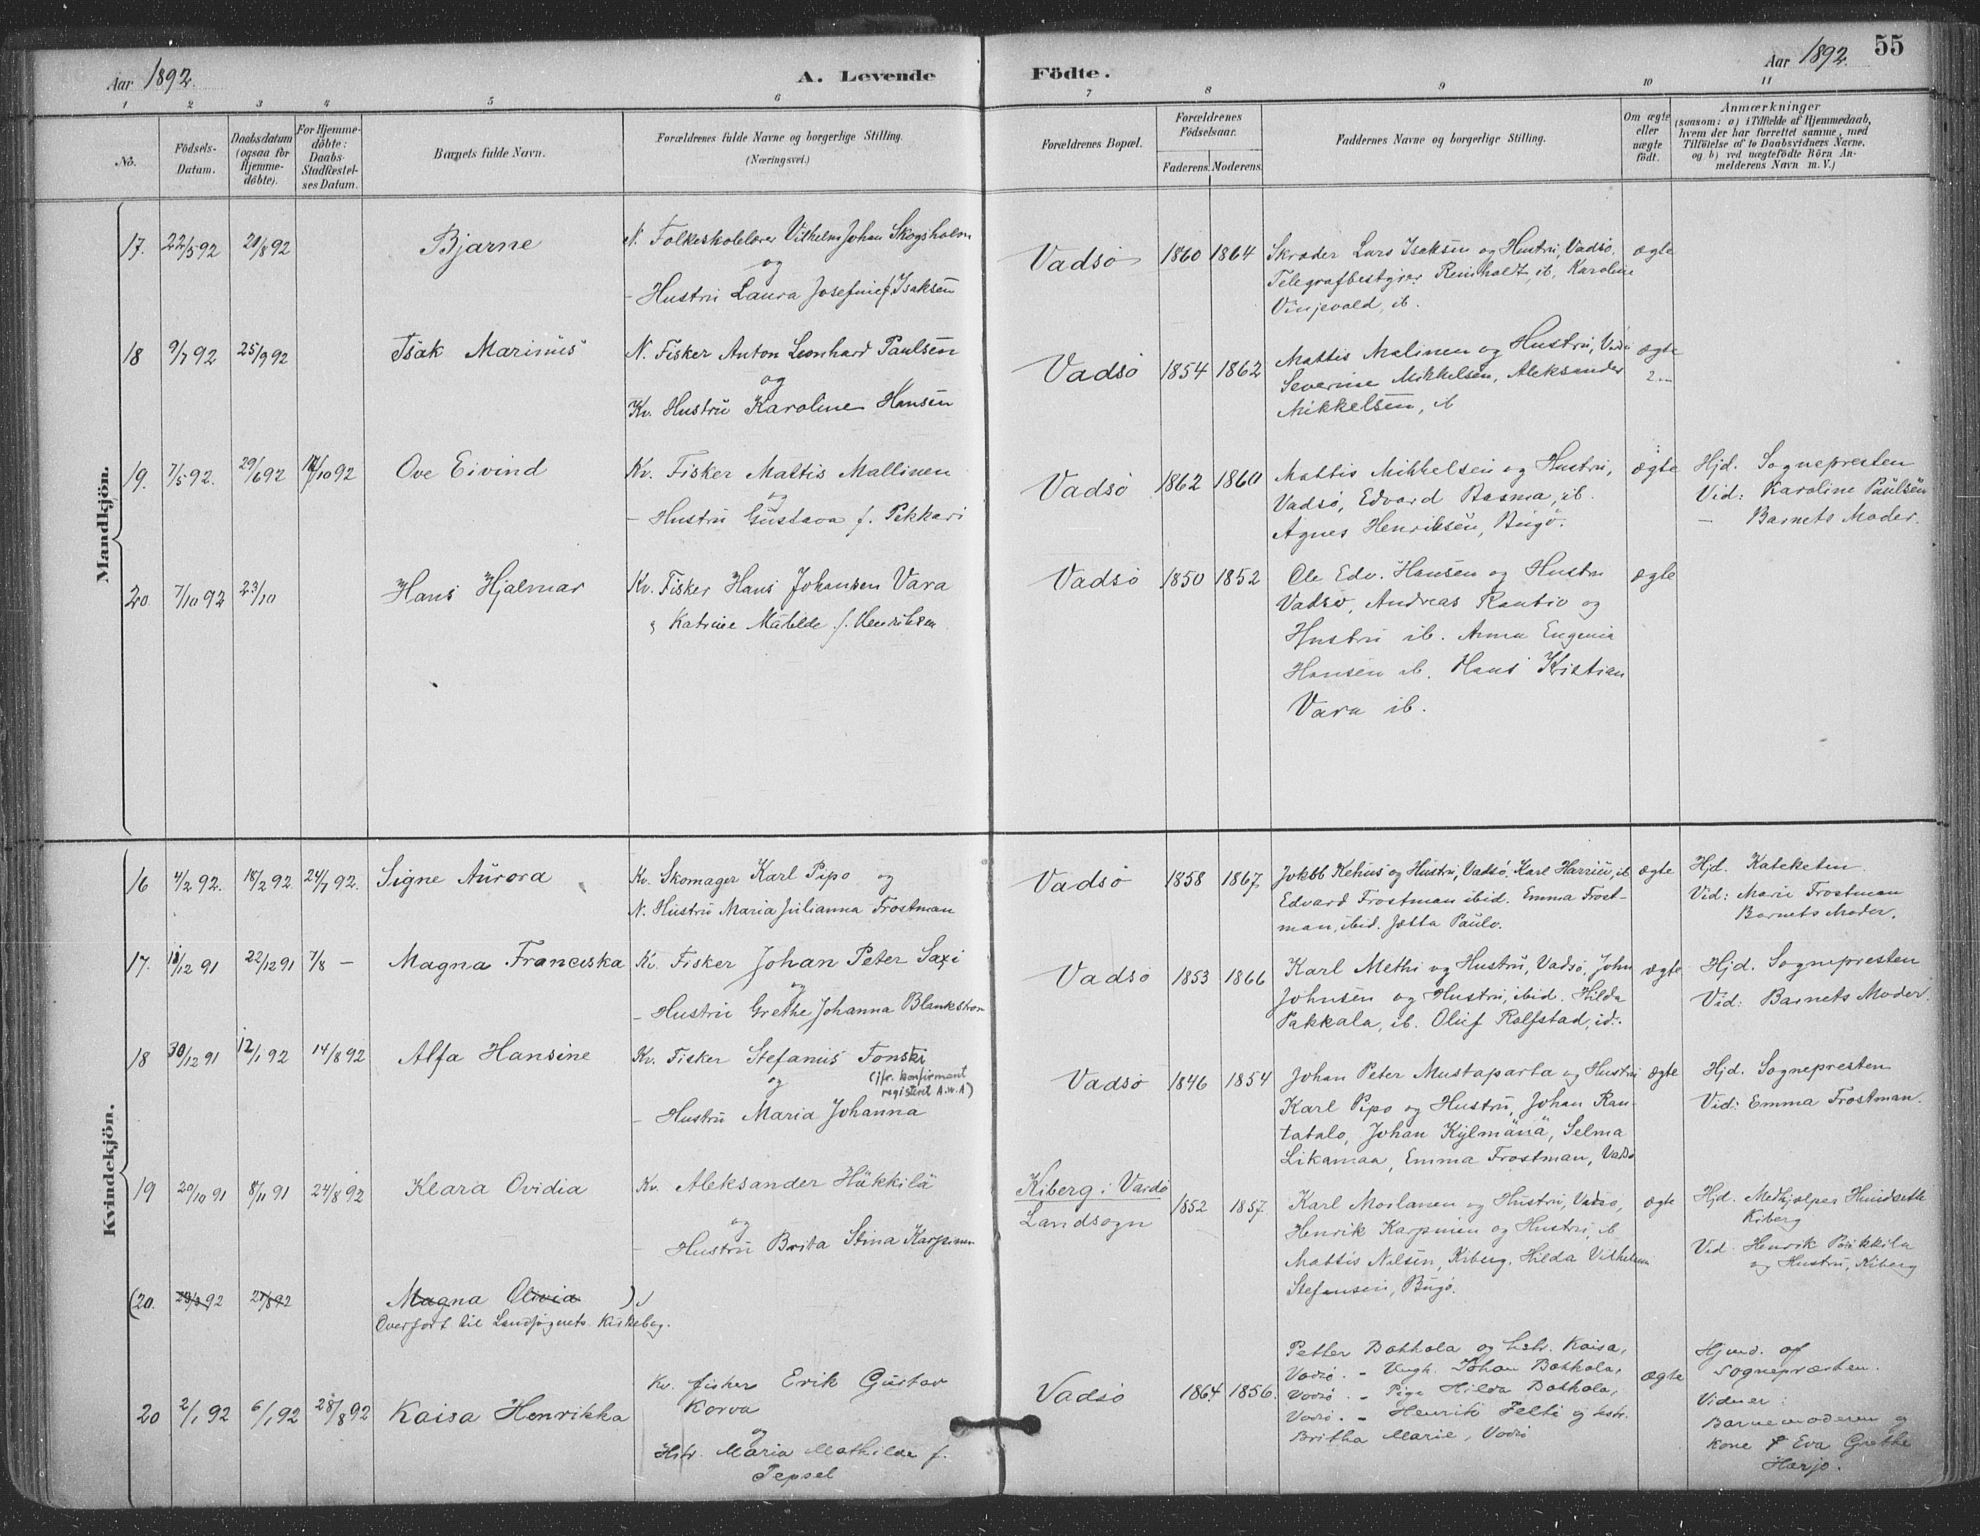 Aar 1892.
A. Levende Födte.
Aar 1892. 55
1 2 3 4 5 6 7 8 9 10 11
No.
Födsels-
Datum.
Daabsdatum
(ogsaa for
Hjemme-
döbte).
For Hjemme-
döbte:
Daabs-
Stadfæstel-
ses Datum.
Barnets fulde Navn.
Forældrenes fulde Navne og borgerlige Stilling.
(Næringsvei.)
Forældrenes Bopæl.
Forældrenes
Födselsaar.
Faderens. Moderens.
Faddernes Navne og borgerlige Stilling.
Om ægte
eller
uægte
födt.
Anmærkninger
(saasom: a) i Tilfælde af Hjemmedaab,
hvem der har forrettet samme, med
Tilföielse af to Daabsvidners Navne,
og b) ved uægtefödte Börn An-
melderens Navn m. V.)
Mandkjön.
17. 22/5 92 21/8 92 Bjarne
N. Folkeskolelærer Vilhelm Johan Skogsholm
og
- Hustru Laura Josefine f. Isaksen
Vadsö 1860 1864
Skræder Lars Isaksen og Hustru, Vadsö,
Telegrafbestyrer Reinholdt, ib, Karoline
Vinjevold, ib.
ægte
18 9/7 92 25/9 92 Isak Marinus
N. Fisker Anton Leonhard Paulsen
og
Kv. Hustru Karoline Hansen
Vadsö 1854 1862
Mattis Malinen og Hustru, Vadsö
Severine Mikkelsen, Aleksander
Mikkelsen, ib
ægte
19. 7/5 92. 29/6 92 /10 92 Ove Eivind
Kv. Fisker Mattis Mallinen
og
- Hustru Gustava f. Pekkari
Vadsö 1862 1860
Mattis Mikkelsen og Hustru,
Vadsö, Edvard Basma, ib.
Agnes Henriksen, Bugö.
ægte
Hjd. Sognepresten
Vid: Karoline Paulsen
- Barnets Moder.
20 7/10 92 23/10 Hans Hjalmar
Kv. Fisker Hans Johansen Vara
Katrine Matilde f. Henriksen
Vadsö 1850 1852
Ole Edv. Hansen og Hustru
Vadsö, Andreas Rautio og
Hustru ib. Anna Eugenia
Hansen ib. Hans Kristian
Vara ib.
ægte
Kvindekjön.
16 4/2 92. 18/2 92 24/7 92. Signe Aurora
Kv. Skomager Karl Pipo og
N. Hustru Maria Julianna Frostman
Vadsö 1858 1867
Jakob Kehus og Hustru, Vadsö, Karl Harriu, ib
Edvard Frostman ibid. Emma Frost-
man, ibid. Jætta Paulo.
ægte
Hjd. Kateketen
Vid: Marie Frostman
Barnets Moder.
17. /12 91 22/12 91 7/8 - Magna Franciska
Kv. Fisker Johan Peter Saxi
og
- Hustru Grethe Johanna Blankstrom
Vadsö 1853 1866
Karl Methi og Hustru, Vadsö, John
Johnsen og Hustru, ibid. Hilda
Pakkala, ib. Oluf Rolfstad, id.
ægte
Hjd. Sognepresten
Vid: Barnets Moder.
18 30/12 91 12/1 92 14/8 92 Alfa Hansine
Kv. Fisker Stefanus Tonski
(jfr. konfirmant
registeret A.w.A)
og
- Hustru Maria Johanna
Vadsö 1846 1854
Johan Peter Mustaparta og Hustru
Karl Pipo og Hustru, Johan Rau-
tatalo, Johan Kylmänä, Selma
Likamaa, Emma Frostman, Vadsö
ægte
Hjd. Sognepresten
Vid: Emma Frostman.
19 20/10 91 8/11 91 24/8 92 Klara Ovidia
Kv. Aleksander Häkkilä
og
- Hustru Brita Stina Karpinen
Kiberg i Vardö
Landsogn
1852 1857.
Karl Moslanen og Hustru, Vadsö,
Henrik Karpinen og Hustru, ib
Mattis Nilsen, Kiberg. Hilda Vilhelmine
Stefansen, Bugö.
ægte
Hjd. Medhjælper Hundsette
Kiberg
Vid. Henrik Pukkila
og Hustru, Kiberg
(20. 92 21/8 92 Magna Olivia )
Overfört til Landsognets Kirkebog.
20 2/1 92 6/1 92 28/8 92 Kaisa Henrikka
Kv. fisker Erik Gustav
Korva
og
Hstr. Maria Mathilde f.
Pepsel
Vadsö 1864 1856.
Petter Bakkola og hstr. Kaisa,
Vadsö. - Ungk. Johan Bakkola,
Vadsö. - Pige Hilda Bakkola,
Vadsö. - Henrik Felti og hstr.
Britha Marie, Vadsö
ægte
Hjmd. af
Sognepræsten.
Vidner:
Barnemoderen og
Kone Eva Grethe
Harjo.